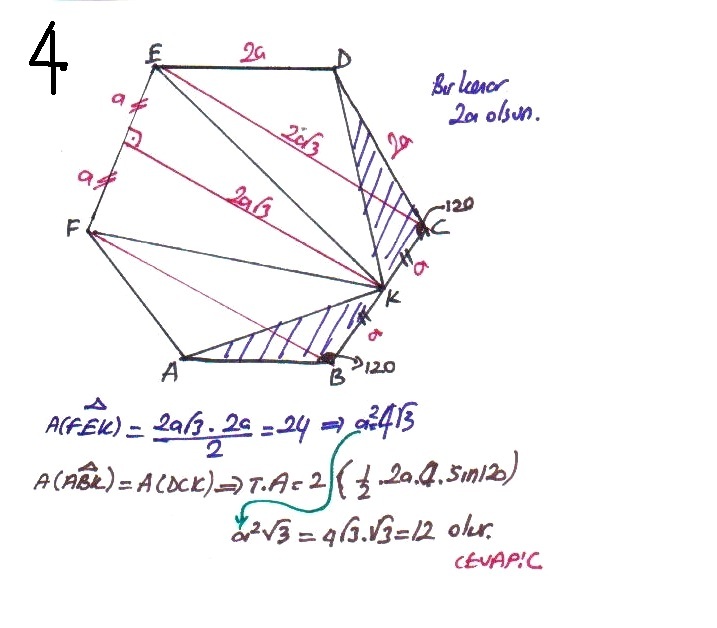 4
E
2a
D
Bir kenar
2a olsun.
a
2a√3
2a
a
2a√3
120
C
F
a
K
a
A
B
120
A(FEK) = 2a√3 . 2a / 2 = 24 ⇒ a²=4√3
A(ABK) = A(DCK) ⇒ T.A = 2 (1/2 . 2a . a . sin120)
a²√3 = 4√3.√3 = 12 olur.
CEVAP:C